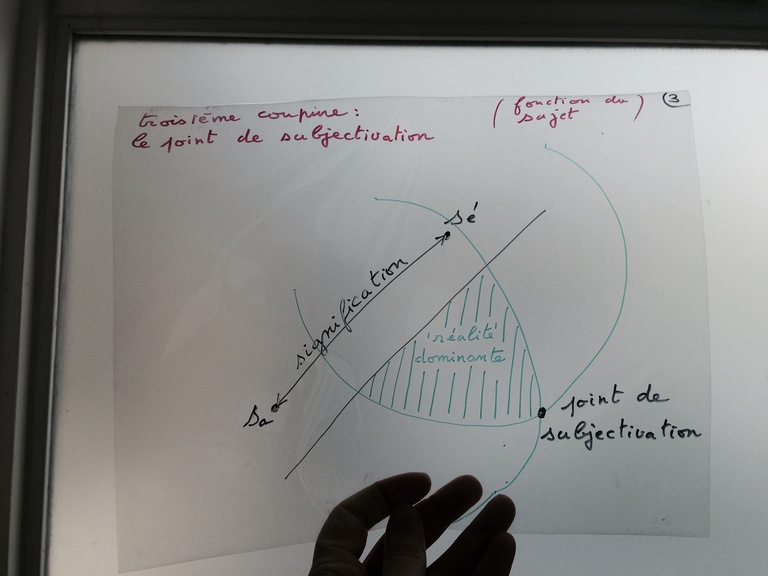 troisième coupine :
le point de subjectivation
( fonction du
sujet )
3
sé
signification
sa
"réalité
dominante
point de
subjectivation